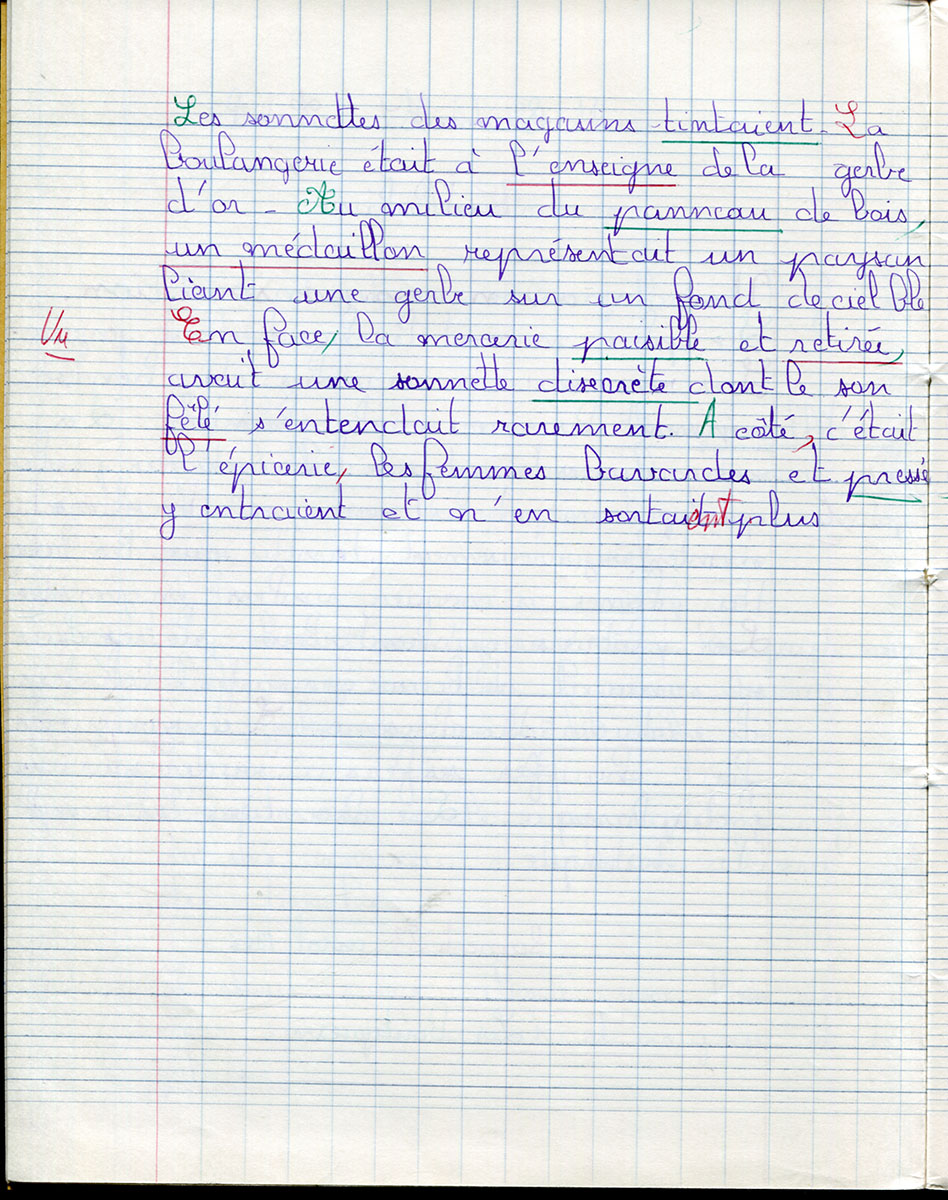 Les sonnettes des magasins tintaient. La
boulangerie était à l'enseigne de la gerbe
d'or - Au milieu du panneau de bois,
un médaillon représentait un paysan
liant une gerbe sur un fond de ciel ble
Vu En face, la mercerie paisible et retirée,
avait une sonnette discrète dont le son
fêlé s'entendait rarement. A côté, c'était
l'épicerie, les femmes bavardes et pressé
y entraient et n'en sortaient plus